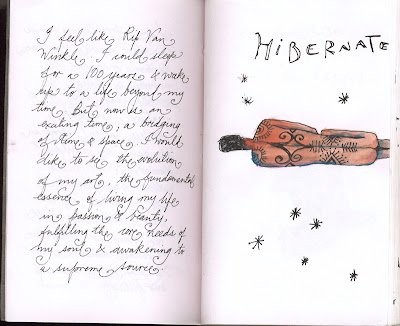 I feel like Rip Van
Winkle. I could sleep
for a 100 years & wake
up to a life beyond my
time. But now is an
exciting time, a bridging
of time & space. I would
like to see the evolution
of my art, the fundamental
essence of living my life
in fashion & beauty,
fulfilling the core needs of
my soul & awakening to
a supreme source.
HiBERNATE